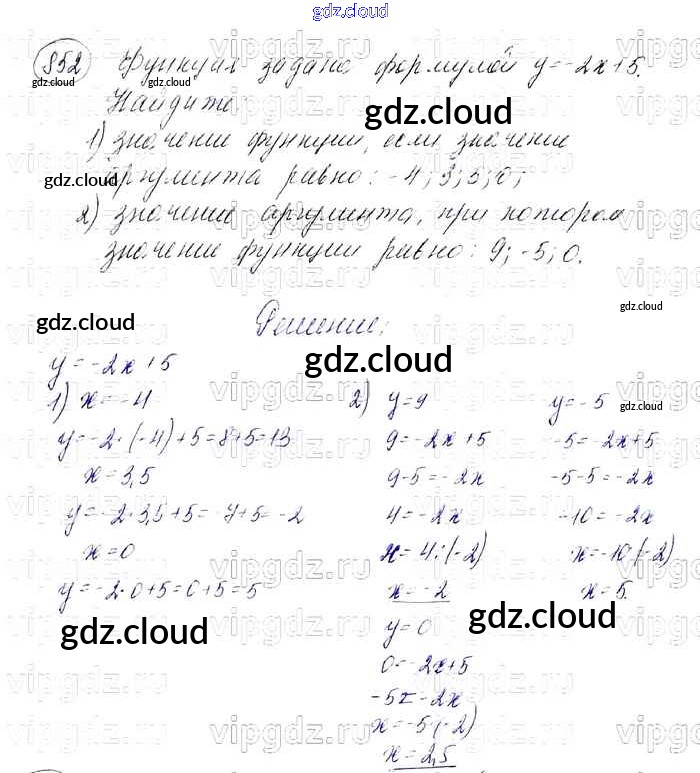 gdz.cloud
852 Функция задана формулой y=-2x+5.
Найдите:
1) значение функции, если значение
аргумента равно: -4; 3,5; 0;
2) значение аргумента, при котором
значение функции равно: 9; -5; 0.
Решение:
y=-2x+5
1) x=-4
y=-2·(-4)+5=8+5=13
x=3,5
y=-2·3,5+5=-7+5=-2
x=0
y=-2·0+5=0+5=5
2) y=9
9=-2x+5
9-5=-2x
4=-2x
x=4:(-2)
x=-2
y=-5
-5=-2x+5
-5-5=-2x
-10=-2x
x=-10:(-2)
x=5
y=0
0=-2x+5
-5=-2x
x=-5:(-2)
x=2,5
gdz.cloud
gdz.cloud
gdz.cloud
gdz.cloud
gdz.cloud
gdz.cloud
gdz.cloud
gdz.cloud
gdz.cloud
gdz.cloud
gdz.cloud
vipgdz.ru